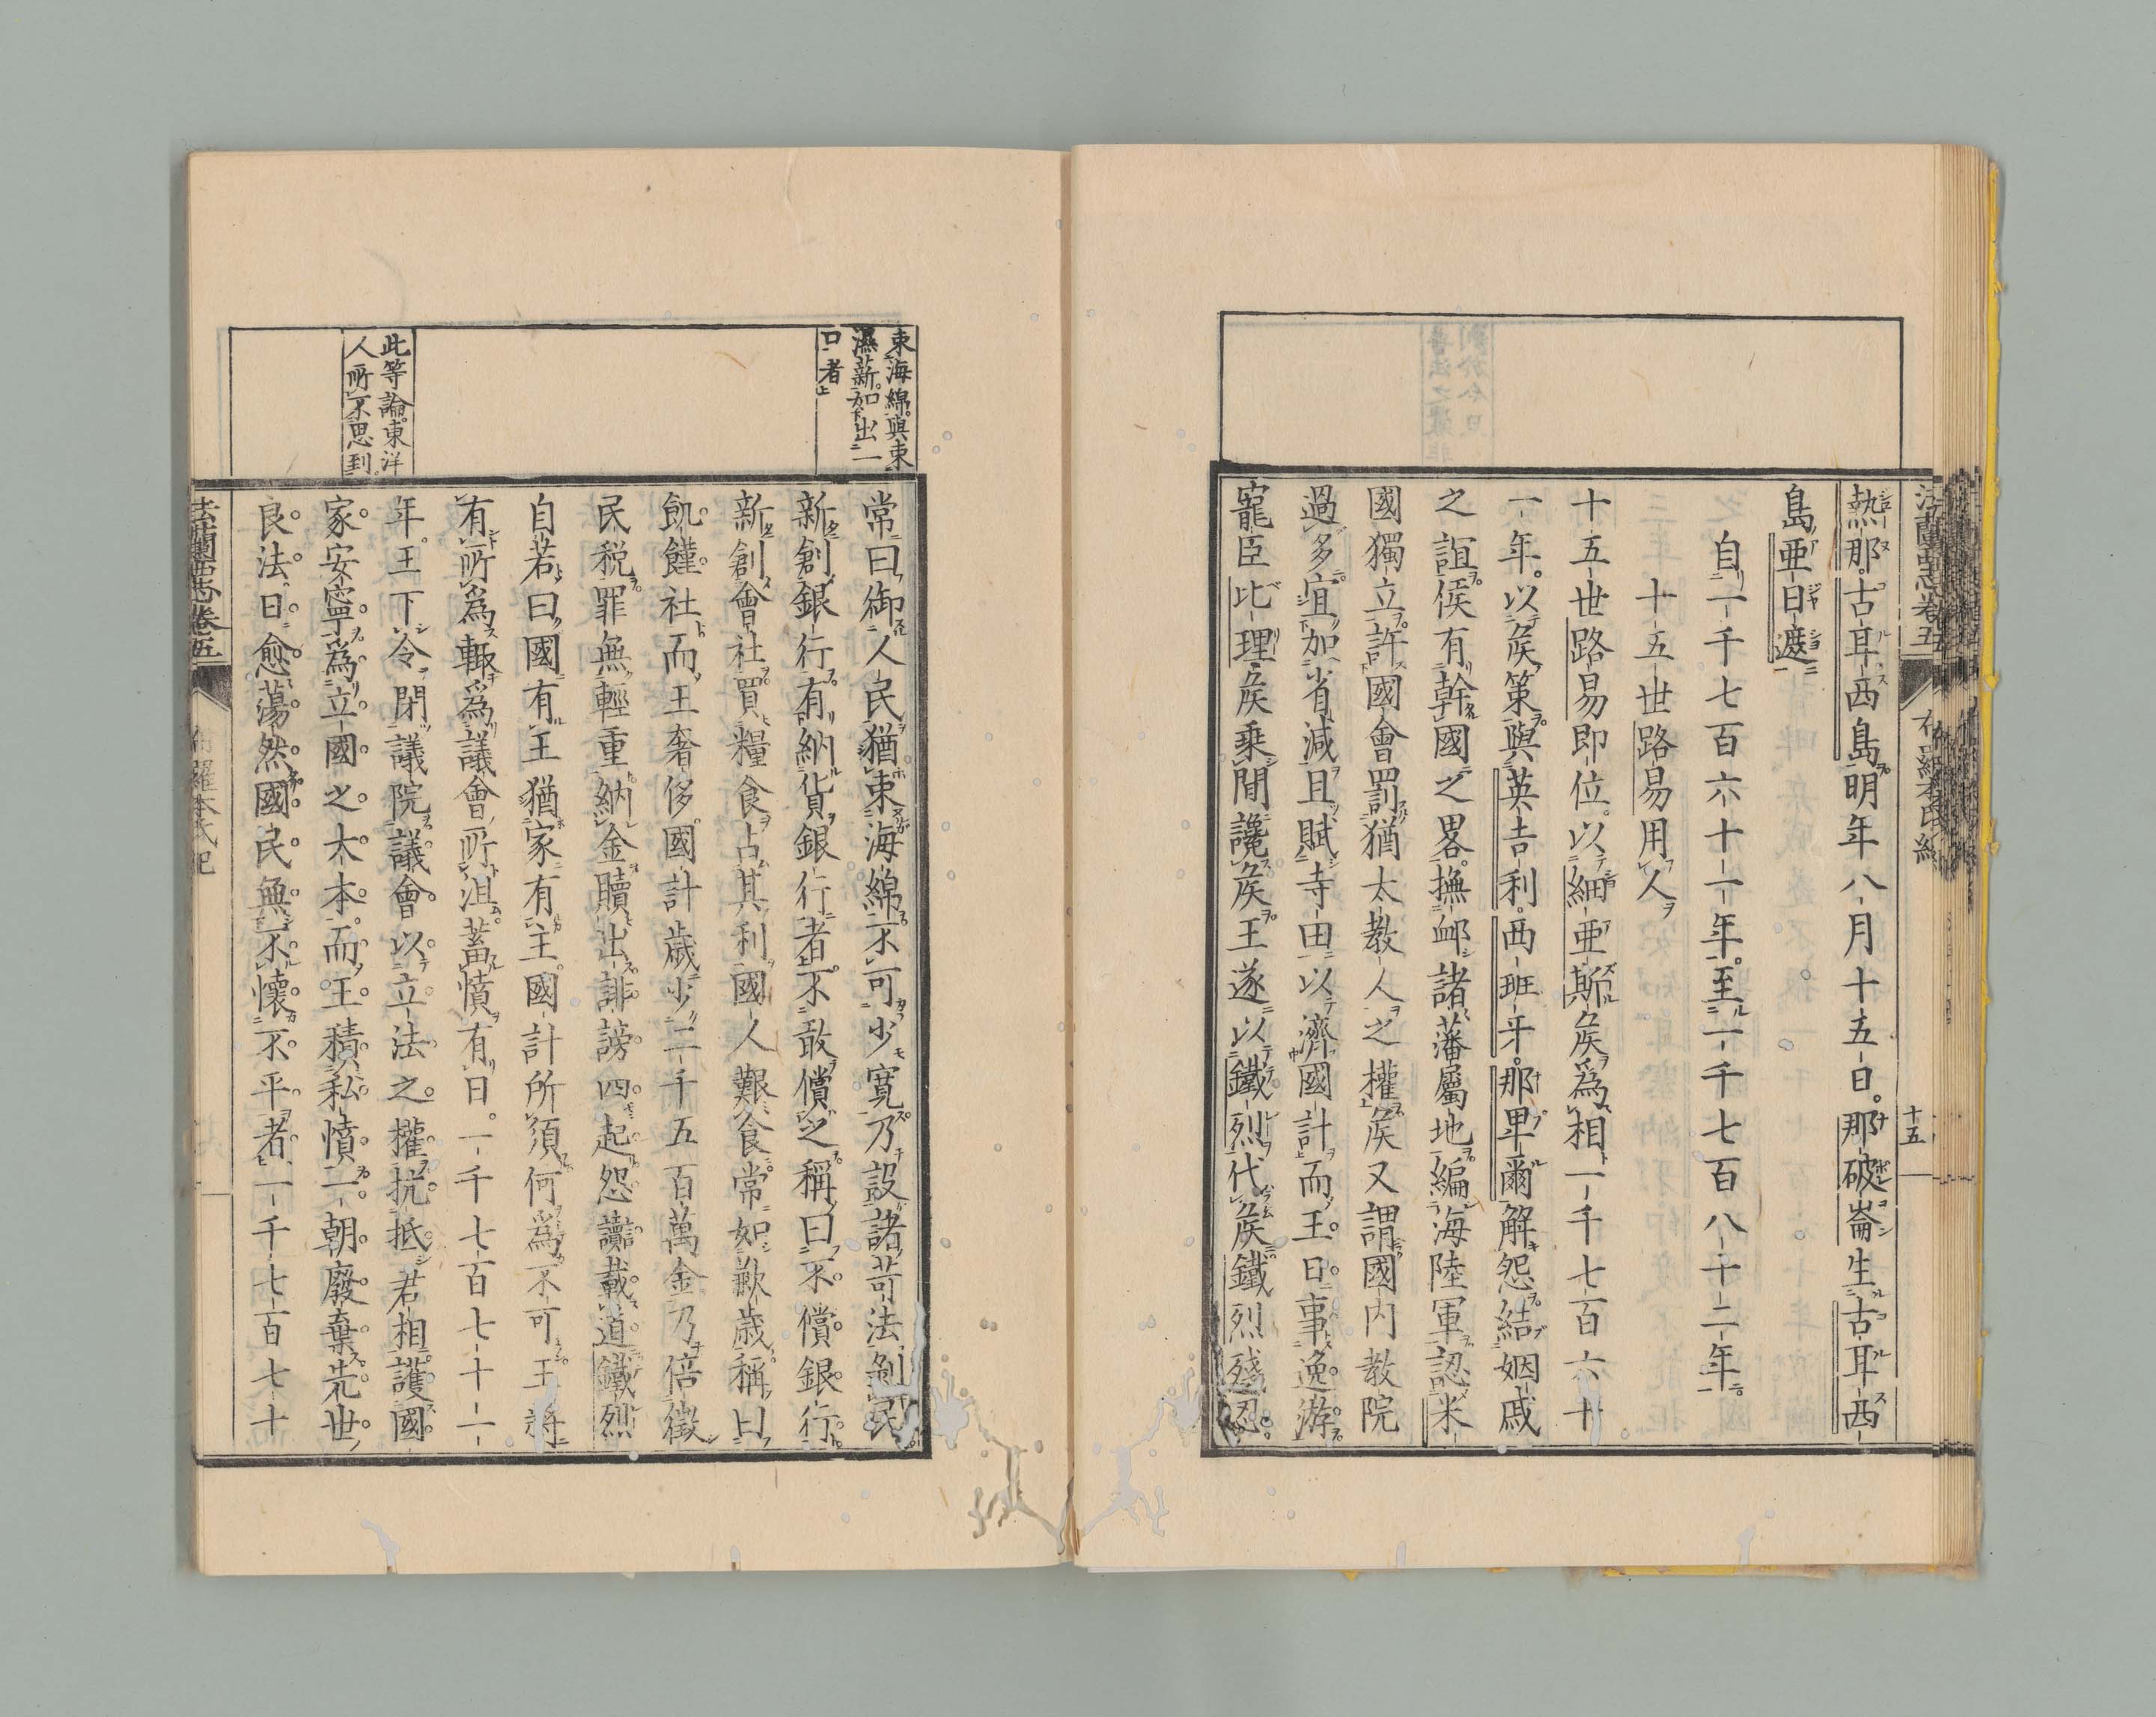 熱那古耳西島明年八月十五日那破崙生古耳西
島亜日遮
自一千七百六十一年至一千七百八十二年
十五世路易用人
十五世路易即位以細亜斯侯為相一千七百六十
一年以侯策與英吉利西班牙那畢爾解怨結姻戚
之誼侯有幹國之畧撫䘏諸藩屬地編海陸軍認米
國獨立許國會罰猶太教人之權侯又謂國内教院
過多宜加省減且賦寺田以濟國計而王日事逸游
寵臣比理侯乗間讒侯王遂以鐵烈代侯鐵烈殘忍
法蘭西志卷五
布羅本氏紀
十五
束海綿與束
濕薪如出一
口者
常曰御人民猶束海綿不可少寛乃設諸苛法剝民
新創銀行有納貨銀行者不敢償之稱曰不償銀行
新創會社買糧食占其利國人艱食常如歉歳稱曰
飢饉社而王奢侈國計歳少二千五百萬金乃倍徵
民税罪無輕重納金贖出誹謗四起怨讟載道鐵烈
自若曰國有王猶家有主國計所須何為不可王將
有所為輙為議會所沮蓄憤有日一千七百七十一
年王下令閉議院議會以立法之權抗抵君相護國
家安寧為立國之大本而王積私憤一朝廢棄先世
良法日愈蕩然國民無不懷不平者一千七百七十
此等論東洋
人所不思到
法蘭西志卷五
布羅本氏紀